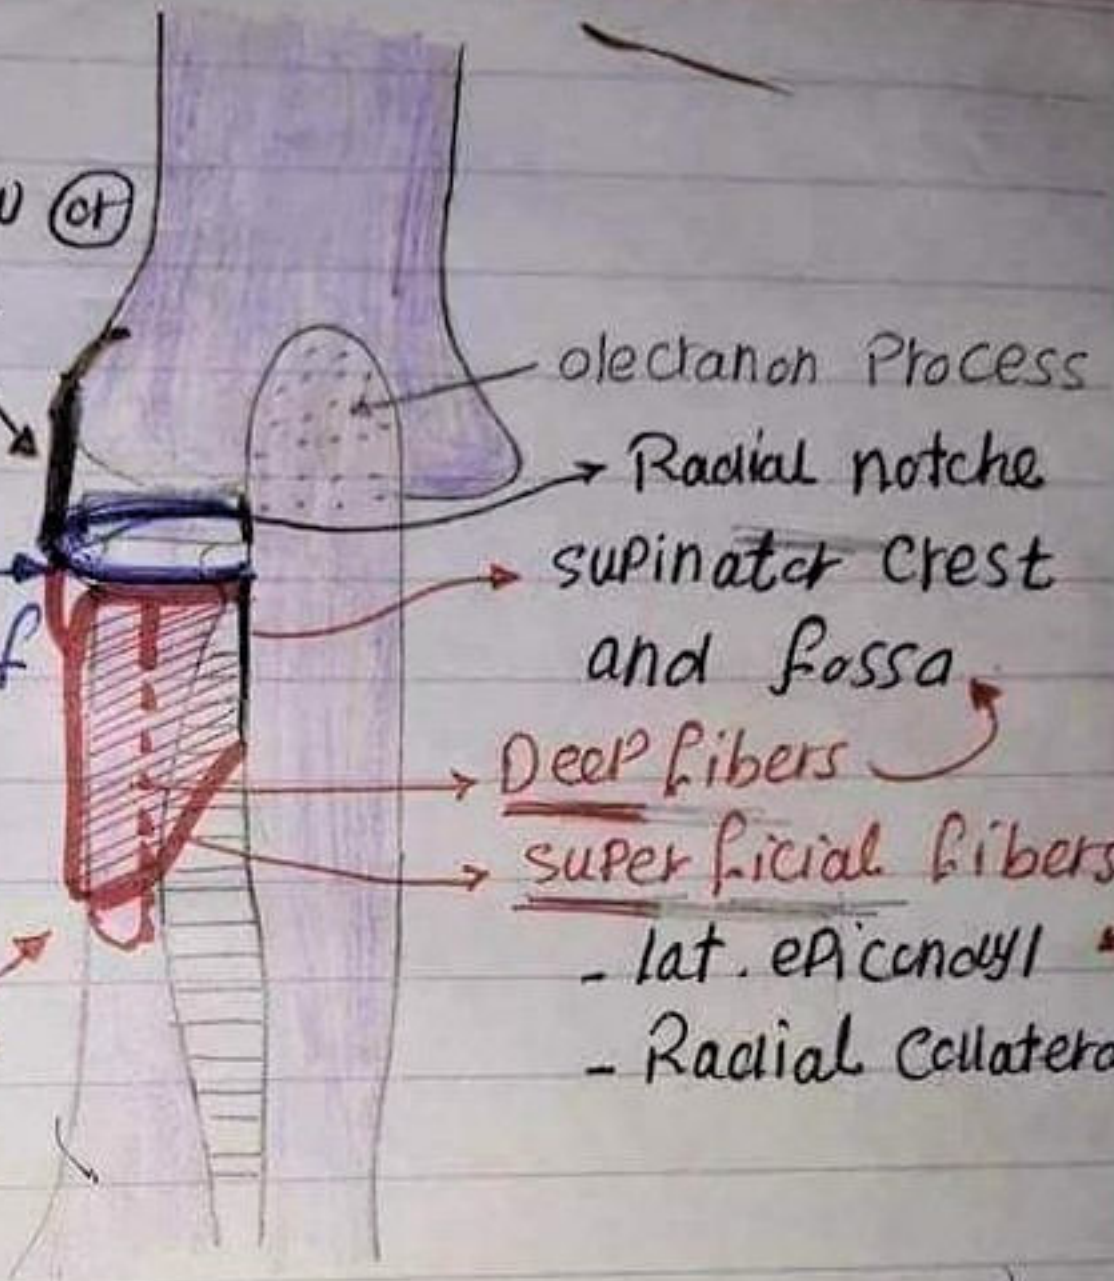 or
olecranon Process
Radial notche
supinator Crest
and fossa
Deep fibers
superficial fibers
- lat. epicondyl
- Radial Collatera